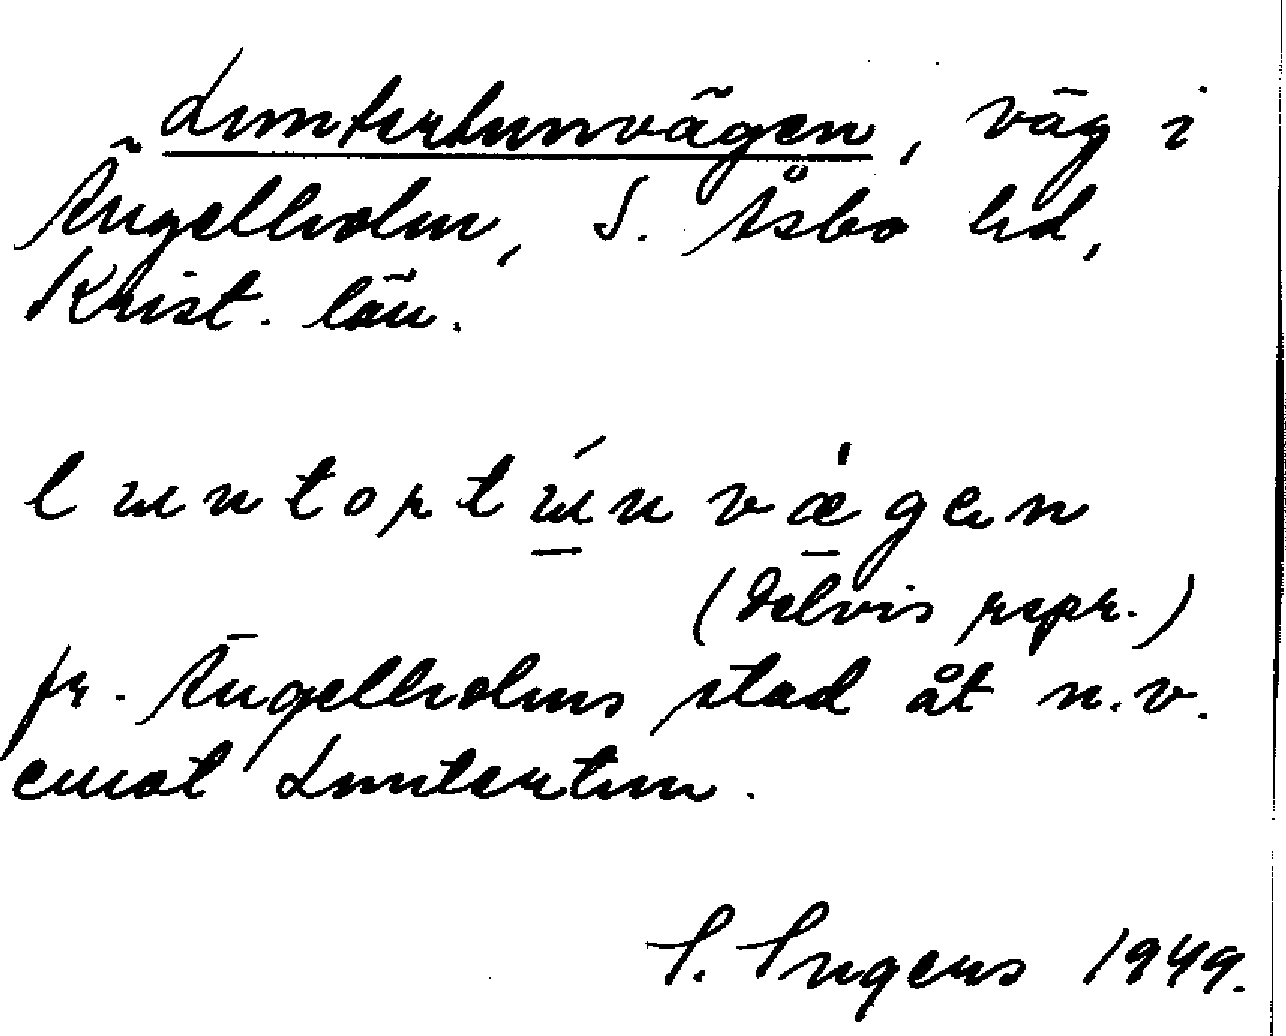 Luntertunvägen, väg i
Ängelholm, S. Åsbo hd,
Krist. län.
luntortúnvägen
(delvis repr.)
fr. Ängelholms stad åt n.v.
emot Luntertun.
S. Ingers 1949.